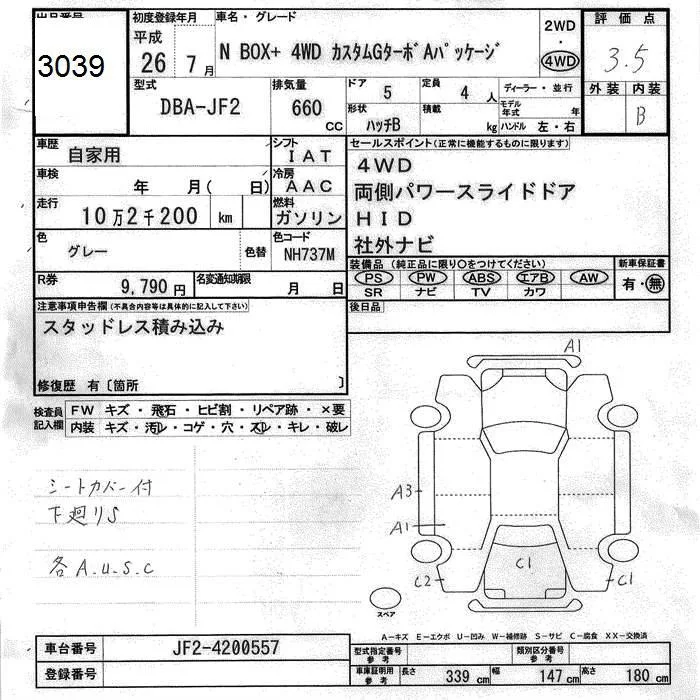 出品番号 初度登録年月 車名・グレード 2WD 評価点
3039 平成 26 年 7 月 N BOX+ 4WD カスタムGターボAパッケージ ・ 4WD 3.5
型式 排気量 ドア 5 定員 4 人 ディーラー・並行 外装 内装
DBA-JF2 660 cc 形状 ハッチB 積載 kg モデル年式 年 B
ハンドル 左・右
車歴 自家用 シフト IAT セールスポイント(正常に機能するものに限ります)
車検 年 月( 日) 冷房 AAC 4WD
走行 10万2千200 km 燃料 ガソリン 両側パワースライドドア
HID
色 グレー 色替 色コード NH737M 社外ナビ
装備品(純正品に限り○をつけてください) 新車保証書
R券 9,790円 名変通知期限 月 日 PS PW ABS エアB AW 有・無
SR ナビ TV カワ
注意事項申告欄(不具合内容等は具体的に記入して下さい) 後日品
スタッドレス積み込み
修復歴 有〔箇所 〕
検査員記入欄 FW キズ・飛石・ヒビ割・リペア跡・×要
内装 キズ・汚レ・コゲ・穴・スレ・キレ・破レ
A1
シートカバー付
下廻りS
A3
A1
各A.U.S.C
C1
C2 C1
スペア
A-キズ E-エクボ U-凹み W-補修跡 S-サビ C-腐食 XX-交換済
車台番号 JF2-4200557 型式指定番号 参考 類別区分番号 参考
登録番号 車庫証明用 参考 長さ 339 cm 幅 147 cm 高さ 180 cm